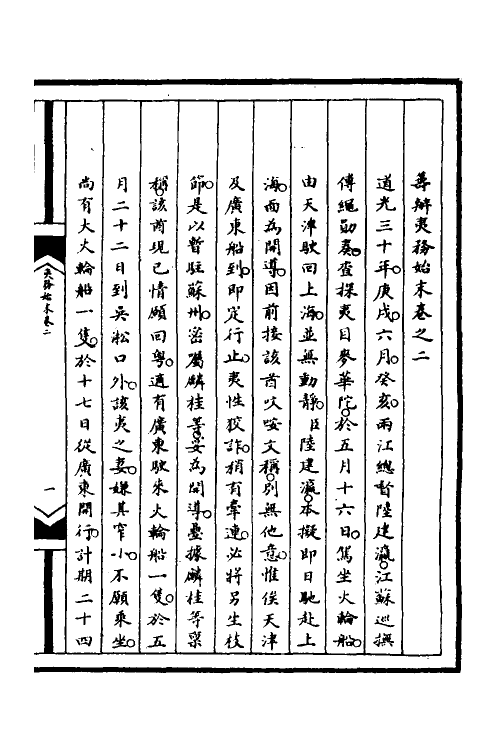 籌辦夷務始末卷之二
道光三十年庚戌六月癸亥兩江總督陸建瀛江蘇巡撫
傅繩勛奏查探夷目麥華陀於五月十六日駕坐火輪船
由天津駛回上海並無動靜臣陸建瀛本擬即日馳赴上
海面為開導因前接該酋咬𠸄文稱別無他意惟俟天津
及廣東船到即定行止夷性狡詐稍有牽連必將另生枝
節是以暫駐蘇州密囑麟桂等妥為開導疊據麟桂等稟
稱該酋現已情願回粵適有廣東駛來火輪船一隻於五
月二十二日到吳淞口外該夷之妻嫌其窄小不願乘坐
尚有大火輪船一隻於十七日從廣東開行計期二十四
夷務始末卷二
一